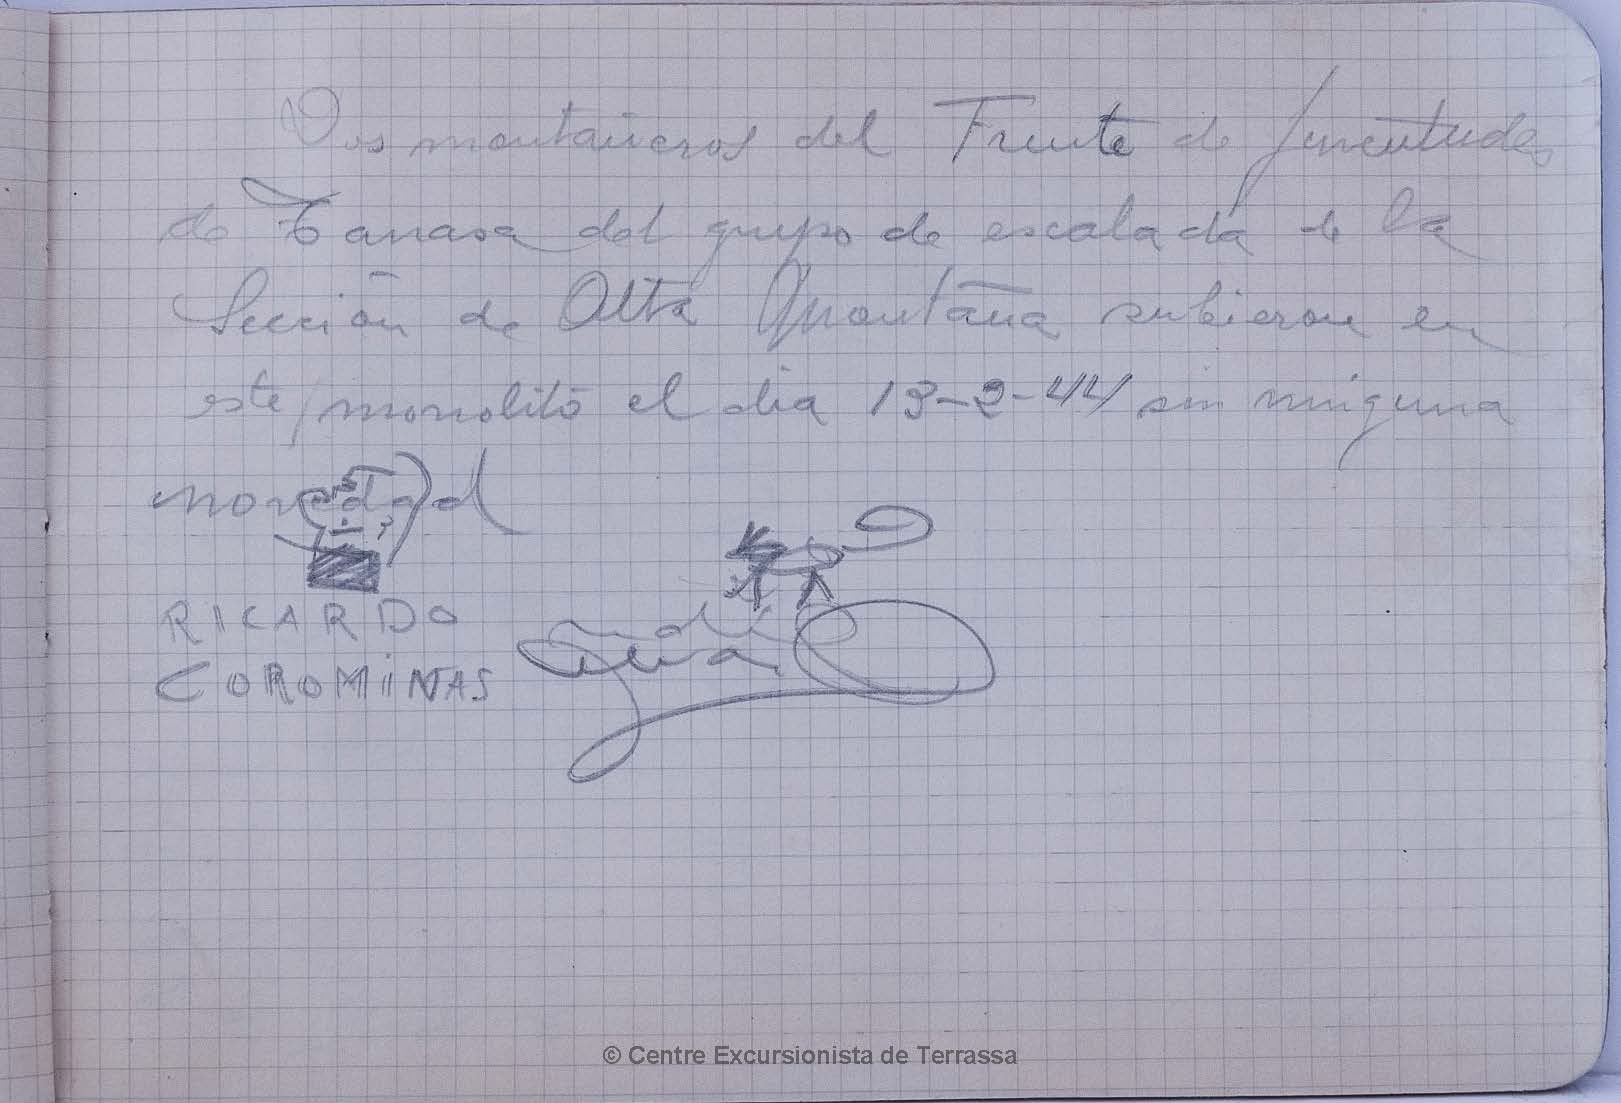 Dos montañeros del Frente de Juventudes
de Tarrasa del grupo de escalada de la
Sección de Alta Montaña subieron en
este monolito el dia 13-2-44 sin ninguna
novedad
RICARDO
COROMINAS
© Centre Excursionista de Terrassa